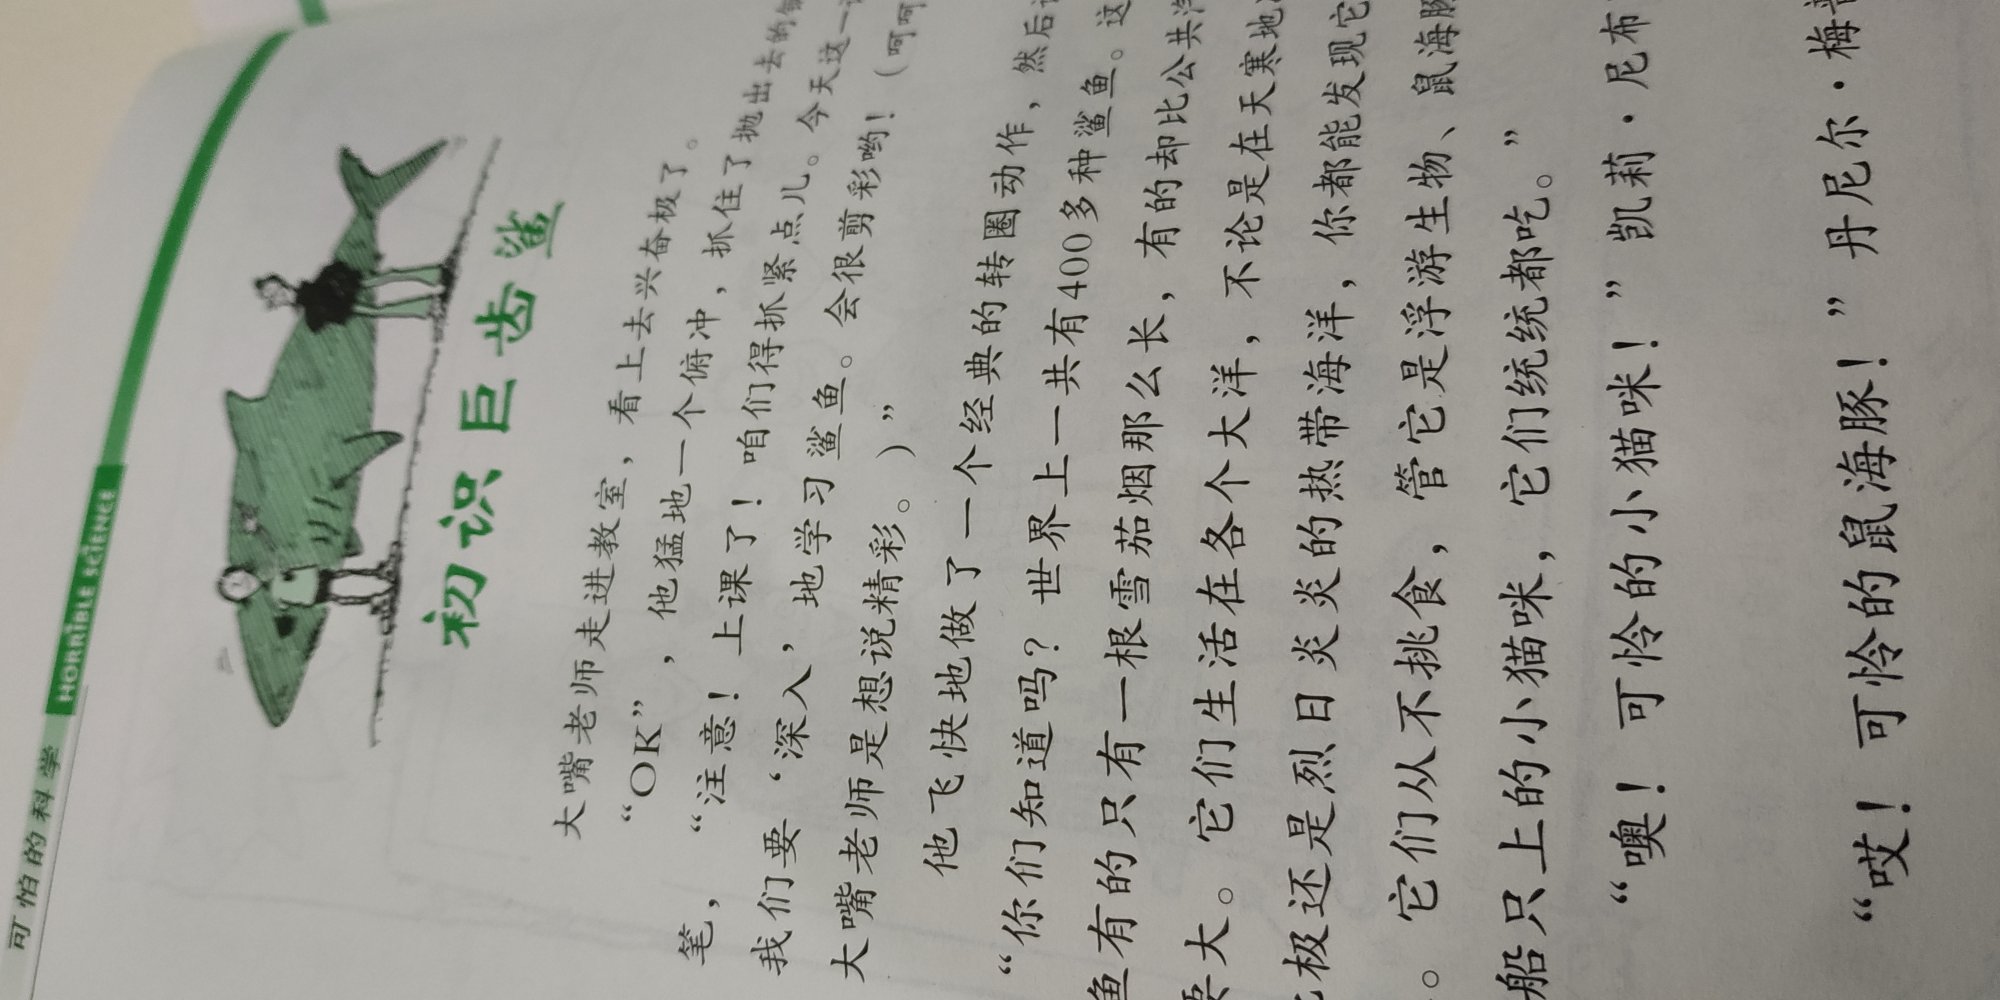 可怕的科学 HORRIBLE SCIENCE
初识巨齿鲨
大嘴老师走进教室，看上去兴奋极了。
“OK”，他猛地一个俯冲，抓住了抛出去的
笔，“注意！上课了！咱们得抓紧点儿。今天这一
我们要‘深入’地学习鲨鱼。会很剪彩哟！（呵呵
大嘴老师是想说精彩。）”
他飞快地做了一个经典的转圈动作，然后
“你们知道吗？世界上一共有400多种鲨鱼。这
鱼有的只有一根雪茄烟那么长，有的却比公共
要大。它们生活在各个大洋，不论是在天寒地
极还是烈日炎炎的热带海洋，你都能发现它
。它们从不挑食，管它是浮游生物、鼠海豚
船只上的小猫咪，它们统统都吃。”
“噢！可怜的小猫咪！”凯莉·尼布
“哎！可怜的鼠海豚！”丹尼尔·梅